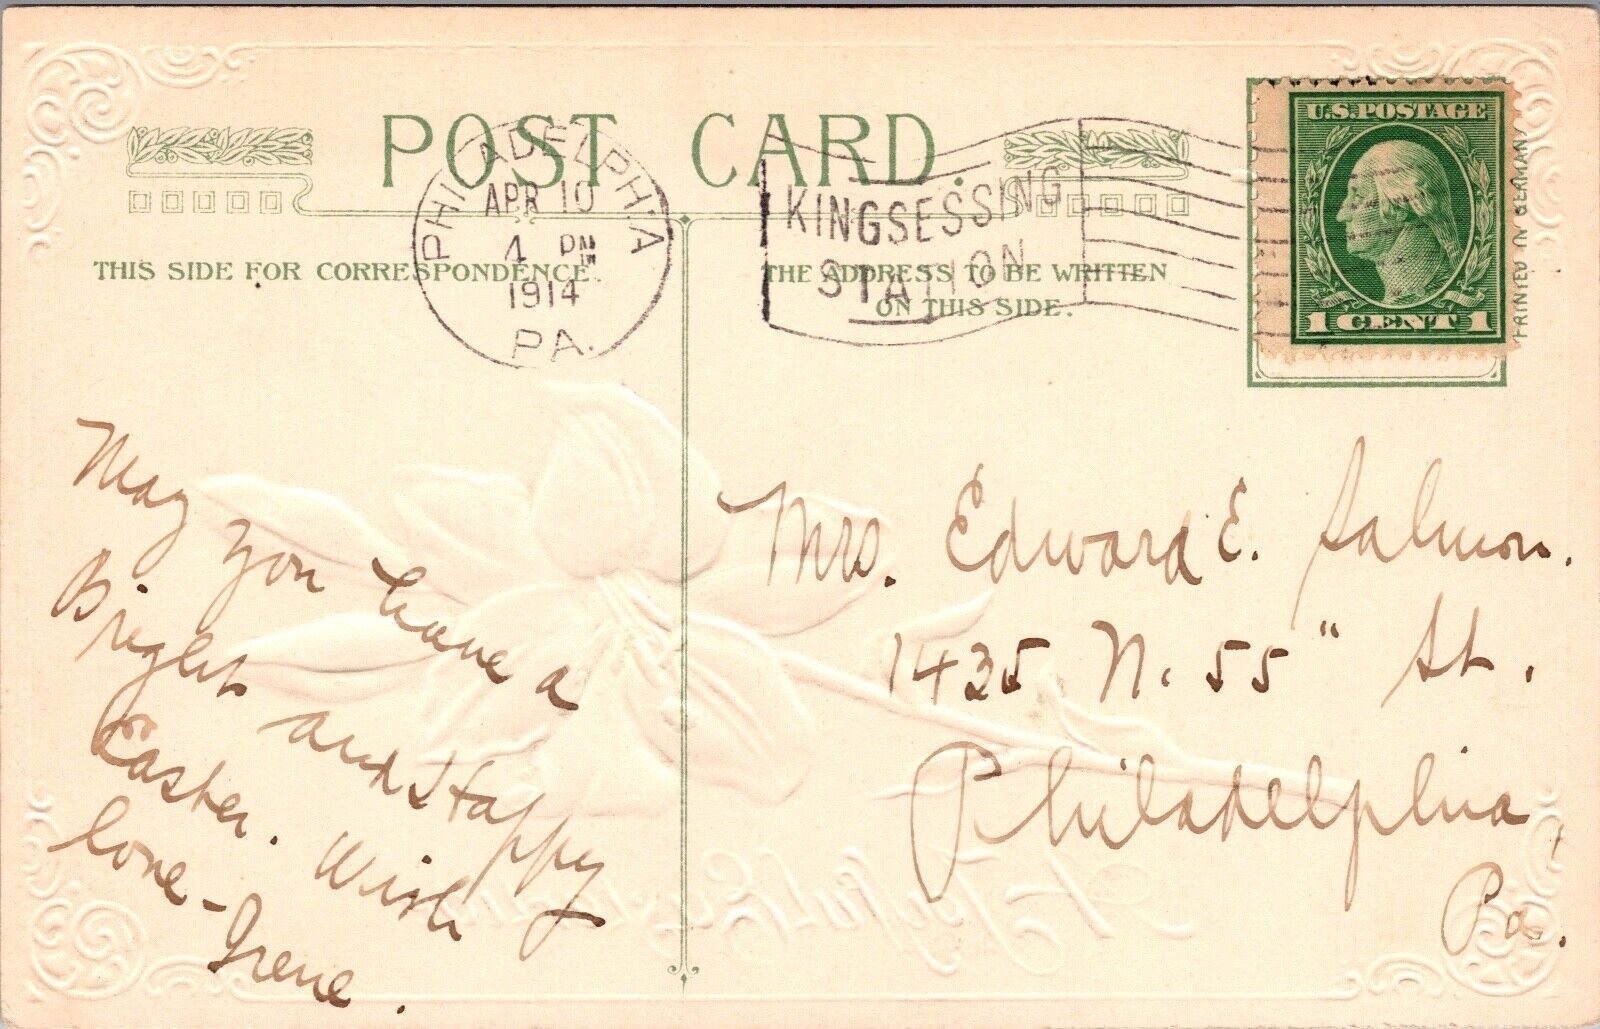 POST CARD.
PHILADELPHIA
APR 10
4 PM
1914
PA.
KINGSESSING
STATION
U.S. POSTAGE
1 CENT 1
PRINTED IN GERMANY
THIS SIDE FOR CORRESPONDENCE.
THE ADDRESS TO BE WRITTEN
ON THIS SIDE.
May
you have a
Bright and Happy
Easter. With
love - Irene.
Mrs. Edward E. Salmon.
1435 N. 55" St.
Philadelphia,
Pa.
A Joyful Easter